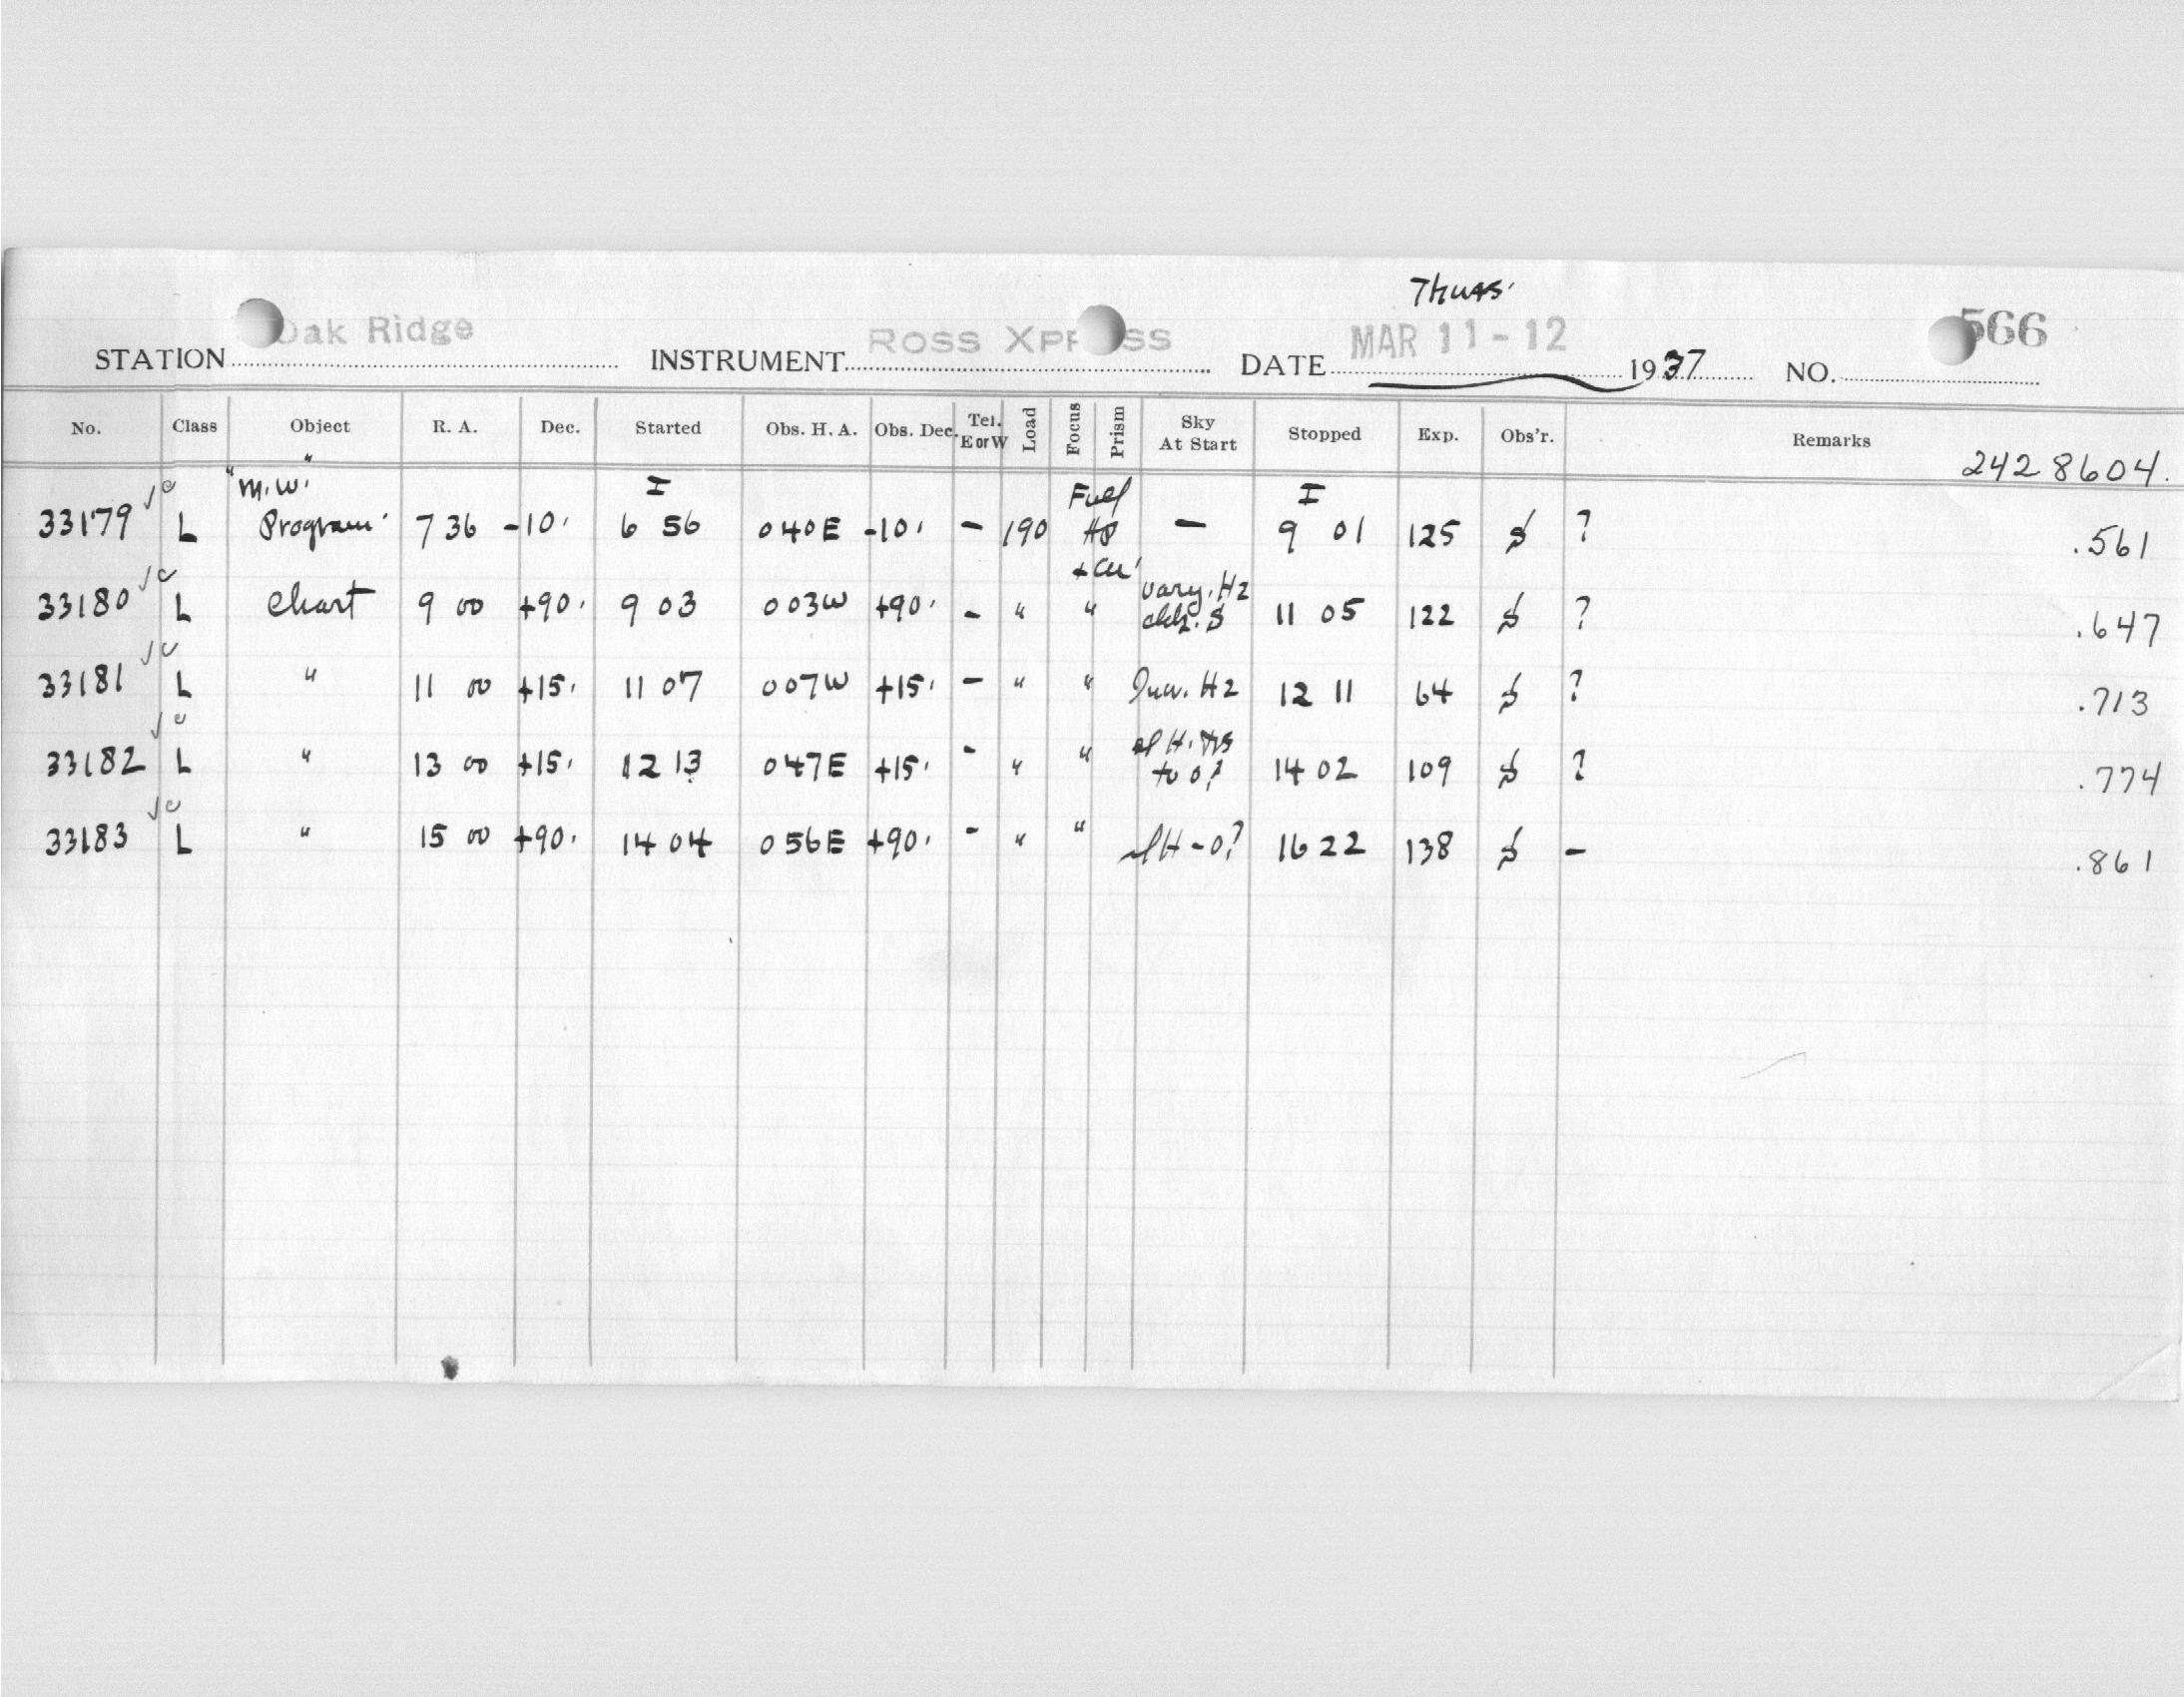 Thurs.
STATION Oak Ridge INSTRUMENT ROSS XPRESS DATE MAR 11-12 1937 NO. 566
No. Class Object R. A. Dec. Started Obs. H. A. Obs. Dec. Tel. E or W Load Focus Prism Sky At Start Stopped Exp. Obs'r. Remarks
2428604.
"M.W." I I
33179 L Program 7 36 -10. 6 56 0 40E -10. - 190 - 9 01 125 ? .561
vary. H2
33180 L Chart 9 00 +90. 9 03 0 03W +90. - " " 11 05 122 ? .647
33181 L " 11 00 +15. 11 07 0 07W +15. - " " H2 12 11 64 ? .713
33182 L " 13 00 +15. 12 13 0 47E +15. - " " to 0? 14 02 109 ? .774
33183 L " 15 00 +90. 14 04 0 56E +90. - " " 16 22 138 - .861